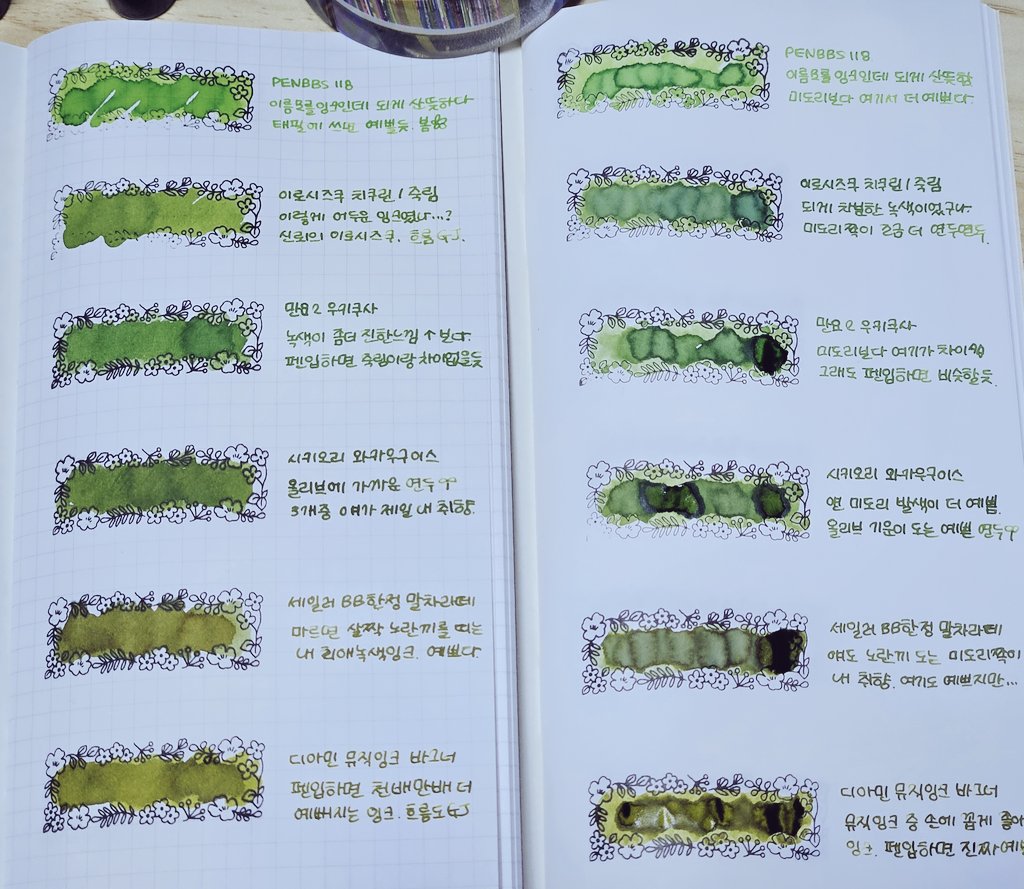 PENBBS 118
이름모를 잉크인데 되게 산뜻하다
태필에 쓰면 예쁠듯. 봄
이로시즈쿠 치쿠린 / 죽림
이렇게 어두운 잉크였나...?
신뢰의 이로시즈쿠. 흐름 GJ.
만요2 우키쿠사
녹색이 좀더 진한느낌 ↑ 보다.
펜입하면 죽림이랑 차이없을듯
시키오리 와카우구이스
올리브에 가까운 연두
3개중 얘가 제일 내 취향.
세일러 BB한정 말차라떼
마르면 살짝 노란끼를 띠는
내 최애녹색잉크. 예쁘다.
디아민 뮤직잉크 바그너
펜입하면 천배만배 더
예뻐지는 잉크. 흐름도 GJ
PENBBS 118
이름모를 잉크인데 되게 산뜻함
미도리보다 여기서 더 예쁘다
이로시즈쿠 치쿠린 / 죽림
되게 차분한 녹색이었구나.
미도리쪽이 조금 더 연두연두.
만요2 우키쿠사
미도리보다 여기가 차이
그래도 펜입하면 비슷할듯.
시키오리 와카우구이스
얜 미도리 발색이 더 예쁨.
올리브 기운이 도는 예쁜 연두
세일러 BB한정 말차라떼
얘도 노란끼 도는 미도리쪽이
내 취향. 여기도 예쁘지만...
디아민 뮤직잉크 바그너
뮤직잉크 중 손에 꼽게 좋아
잉크. 펜입하면 진짜